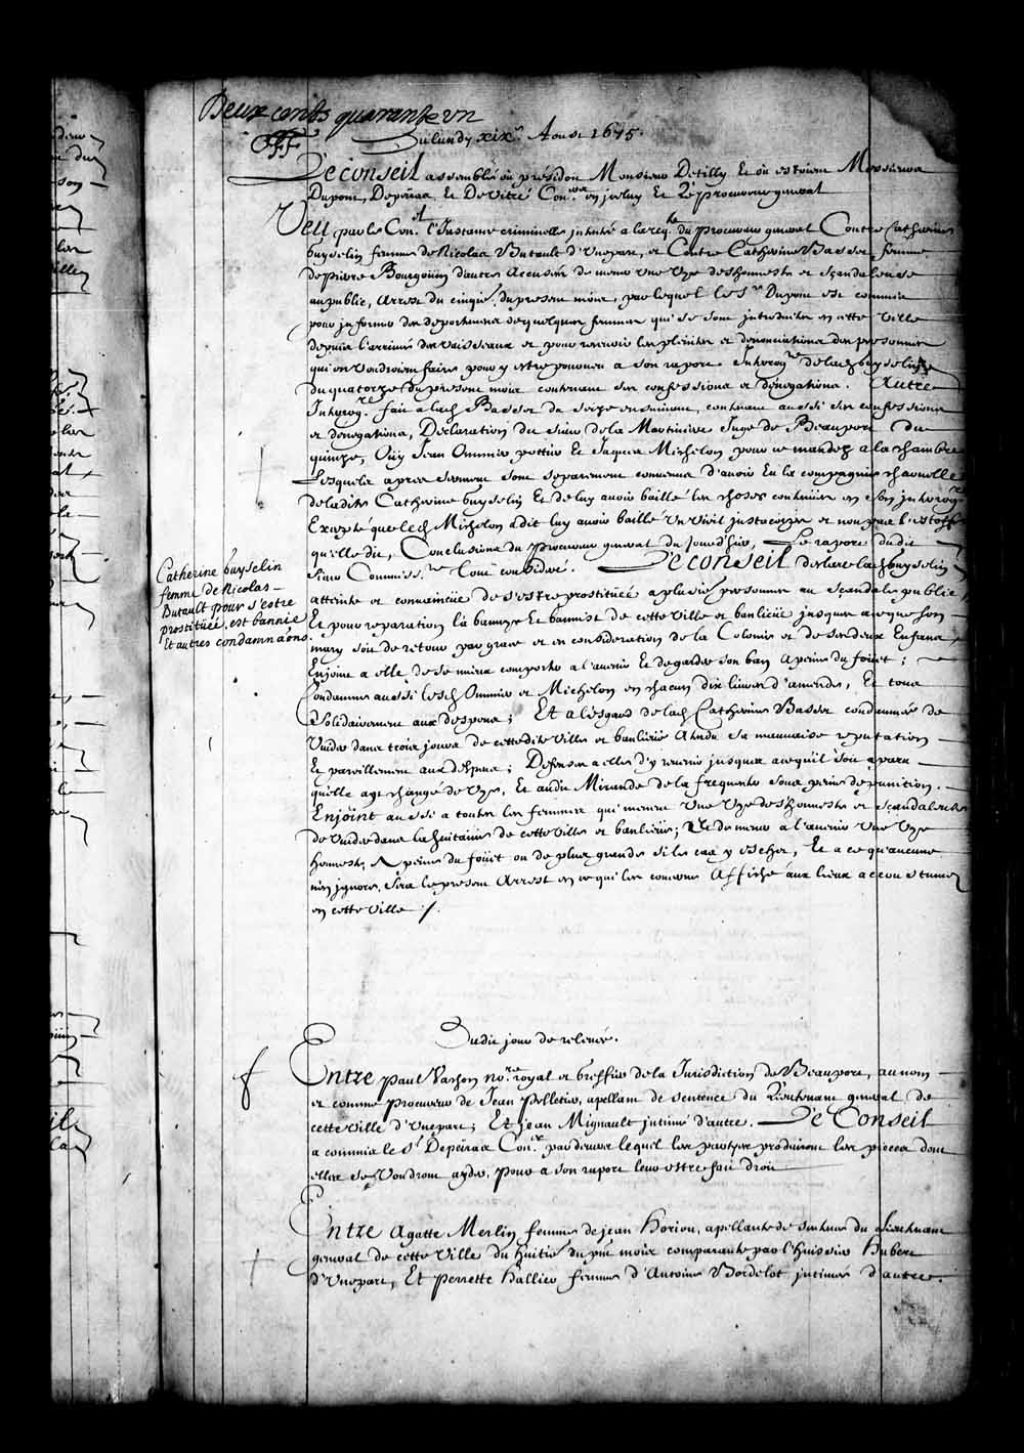 Deux cents quarante un
Du lundy xix.e Aoust 1675.
Le conseil assemblé ou présidoit Monsieur Detilly Et où estoient Messieurs
Dupont, Depeiras, Et De Vitré Con.ers en jceluy Et Le procureur general
Veu par le Con.el l'Instance criminelle jntentée a la req.te du procureur general Contre Catherine
Guyselin femme de Nicolas Butault d'Vnepart, et Contre Catherine Basset femme
de pierre Bourgouin d'autre Accusées de mener vne vye deshonneste et scandaleuse
au public, Arrest du cinqie. du present mois, par lequel le S.r Dupont est commis
pour jnformer des deportemens de quelques femmes qui se sont jntroduites en cette ville
depuis l'arriuée des vaisseaux et pour receuoir les plaintes et denonciations des personnes
qui en voudroient faire, pour y estre pourueu a son raport. Interog.re de lad. Guyselin
du quatorze du present mois contenant ses confessions et denegations. Autre
Interog.re fait a lad. Basset du seize ensuiuant, contenant aussi ses confessions
et denegations, Declaration du sieur de la Martiniere Juge de Beauport du
quinze, Ouy Jean Ommier pottier et Jaques Michelon pour ce mandez a la chambre
Lesquels apres serment sont separement conuenus d'auoir Eu la compagnie charnelle
de ladite Catherine Guyselin Et de luy auoir baillé les choses contenües en son jnterog.re
Excepté que led. Michelon a dit luy auoir baillé vn vieil justacorps et non pas l'estoffe
qu'elle dit, Conclusions du procureur general du jourd'huy, Le raport dudit
sieur Commiss.re Tout consideré. Le conseil declare lad. Guyselin
atteinte et conuaincüe de s'estre prostituée a plusie.rs personnes au scandale public,
Et pour reparation l'a bannye Et bannist de cette ville et banlieüe jusques a ce que son
mary soit de retour par grace et en consideration de la Colonie et de ses deux Enfans
Enjoint a elle de se mieux comporter a l'auenir Et de garder son ban a peine du foüet;
Condamne aussi lesd. Ommier et Michelon en chacun dix liures d'amende, Et tous
solidairement aux despens; Et a l'esgard de lad. Catherine Basset condamnée de
Vuider dans trois jours de cettedite ville et banlieüe Attendu sa mauuaise reputation
Et pareillement aux despens; Defenses a elle d'y reuenir jusques a ce qu'il soit aparu
qu'elle ayt changé de vye, Et audit Mirande de la frequenter sous peine de punition.
Enjoint aussi a toutes les femmes qui menent vne vye deshonneste et scandaleuse
de vuider dans la huitaine de cette ville et banlieüe; Et de mener a l'auenir vne vye
honneste, A peine du foüet ou de plus grande si le cas y eschet, Et a ce qu'aucune
n'en jgnore, sera le present Arrest en ce qui les concerne Affiché aux lieux accoustumez
en cette ville ./.
Catherine Guyselin
femme de Nicolas
Butault pour s'estre
prostituée, est bannie
Et autres condamnaôns.
Dudit jour de releuée.
Entre paul Vachon no.re royal et greffier de la Jurisdiction de Beauport, au nom
et comme procureur de Jean pelletier, apellant de sentence du Lieutenant general de
cette ville d'Vnepart; Et jean Mignault jntimé d'autre. Le Conseil
a commis le S.r Depeiras Con.er pardeuant lequel les partyes produiront les pieces dont
elles se voudront ayder, pour a son raport leur estre fait droit
Entre Agatte Merlin femme de jean Horion, apellante de sentence du Lieutenant
general de cette ville du huitie. du pnt mois comparante par l'huissier Hubert
d'Vnepart, Et perrette hallier femme d'Antoine Bordelot jntimée d'autre.